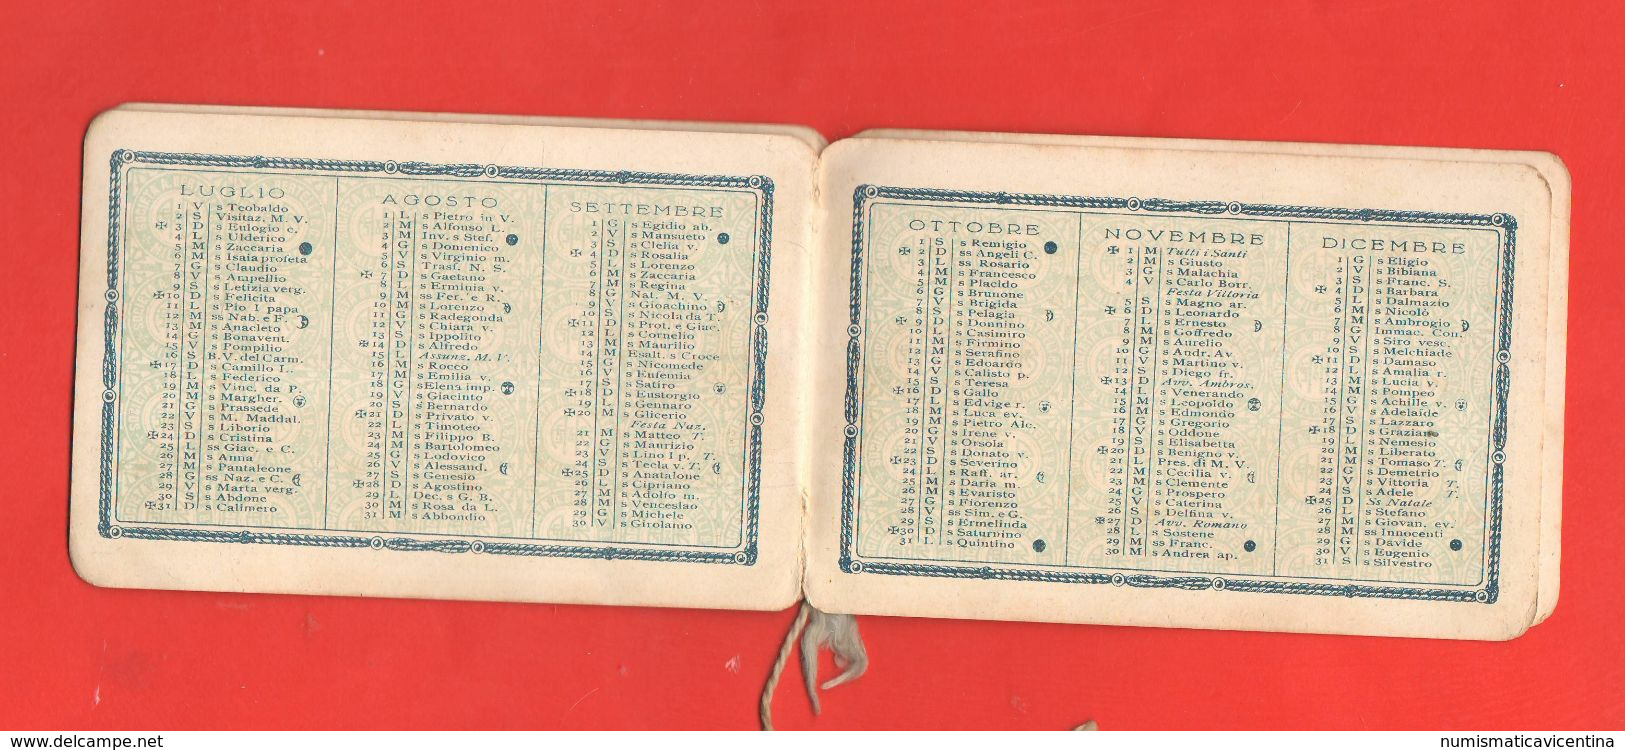 LUGLIO
1 V s Teobaldo
2 S Visitaz. M. V.
✠ 3 D s Eulogio c.
4 L s Ulderico
5 M s Zaccaria
6 M s Isaia profeta
7 G s Claudio
8 V s Ampellio
9 S s Letizia verg.
✠10 D s Felicita
11 L s Pio I papa
12 M ss Nab. e F.
13 M s Anacleto
14 G s Bonavent.
15 V s Pompilio
16 S B. V. del Carm.
✠17 D s Camillo L.
18 L s Federico
19 M s Vinc. da P.
20 M s Margher.
21 G s Prassede
22 V s M. Maddal.
23 S s Liborio
✠24 D s Cristina
25 L ss Giac. e C.
26 M s Anna
27 M s Pantaleone
28 G ss Naz. e C.
29 V s Marta verg.
30 S s Abdone
✠31 D s Calimero
AGOSTO
1 L s Pietro in V.
2 M s Alfonso L.
3 M Inv. s Stef.
4 G s Domenico
5 V s Virginio m.
6 S Trasf. N. S.
✠ 7 D s Gaetano
8 L s Erminia v.
9 M ss Fer. e R.
10 M s Lorenzo
11 G s Radegonda
12 V s Chiara v.
13 S s Ippolito
✠14 D s Alfredo
15 L Assunz. M. V.
16 M s Rocco
17 M s Emilia v.
18 G s Elena imp.
19 V s Giacinto
20 S s Bernardo
✠21 D s Privato v.
22 L s Timoteo
23 M s Filippo B.
24 M s Bartolomeo
25 G s Lodovico
26 V s Alessand.
27 S s Genesio
✠28 D s Agostino
29 L Dec. s G. B.
30 M s Rosa da L.
31 M s Abbondio
SETTEMBRE
1 G s Egidio ab.
2 V s Mansueto
3 S s Clelia v.
✠ 4 D s Rosalia
5 L s Lorenzo
6 M s Zaccaria
7 M s Regina
8 G Nat. M. V.
9 V s Gioachino
10 S s Nicola da T.
✠11 D s Prot. e Giac.
12 L s Cornelio
13 M s Maurilio
14 M Esalt. s Croce
15 G s Nicomede
16 V s Eufemia
17 S s Satiro
✠18 D s Eustorgio
19 L s Gennaro
✠20 M s Glicerio
Festa Naz.
21 M s Matteo T.
22 G s Maurizio
23 V s Lino I p. T.
24 S s Tecla v. T.
✠25 D s Anatalone
26 L s Cipriano
27 M s Adolfo m.
28 M s Venceslao
29 G s Michele
30 V s Girolamo
OTTOBRE
1 S s Remigio
✠ 2 D ss Angeli C.
3 L ss Rosario
4 M s Francesco
5 M s Placido
6 G s Brunone
7 V s Brigida
8 S s Pelagia
✠ 9 D s Donnino
10 L s Casimiro
11 M s Firmino
12 M s Serafino
13 G s Edoardo
14 V s Calisto p.
15 S s Teresa
✠16 D s Gallo
17 L s Edvige r.
18 M s Luca ev.
19 M s Pietro Alc.
20 G s Irene v.
21 V s Orsola
22 S s Donato v.
✠23 D s Severino
24 L s Raff. ar.
25 M s Daria m.
26 M s Evaristo
27 G s Fiorenzo
28 V ss Sim. e G.
29 S s Ermelinda
✠30 D s Saturnino
31 L s Quintino
NOVEMBRE
✠ 1 M Tutti i Santi
2 M s Giusto
3 G s Malachia
4 V s Carlo Borr.
Festa Vittoria
5 S s Magno ar.
✠ 6 D s Leonardo
7 L s Ernesto
8 M s Goffredo
9 M s Aurelio
10 G s Andr. Av
11 V s Martino v.
12 S s Diego fr.
✠13 D Avv. Ambros.
14 L s Venerando
15 M s Leopoldo
16 M s Edmondo
17 G s Gregorio
18 V s Oddone
19 S s Elisabetta
✠20 D s Benigno v.
21 L Pres. di M. V.
22 M s Cecilia v.
23 M s Clemente
24 G s Prospero
25 V s Caterina
26 S s Delfina v.
✠27 D Avv. Romano
28 L s Sostene
29 M ss Franc.
30 M s Andrea ap.
DICEMBRE
1 G s Eligio
2 V s Bibiana
3 S s Franc. S.
✠ 4 D s Barbara
5 L s Dalmazio
6 M s Nicolò
7 M s Ambrogio
8 G Immac. Con.
9 V s Siro vesc.
10 S s Melchiade
✠11 D s Damaso
12 L s Amalia r.
13 M s Lucia v.
14 M s Pompeo
15 G s Achille v.
16 V s Adelaide
17 S s Lazzaro
✠18 D s Graziano
19 L s Nemesio
20 M s Liberato
21 M s Tomaso T.
22 G s Demetrio
23 V s Vittoria T.
24 S s Adele T.
✠25 D Ss Natale
26 L s Stefano
27 M s Giovan. ev.
28 M ss Innocenti
29 G s Davide
30 V s Eugenio
31 S s Silvestro
www.delcampe.net
numismaticavicentina